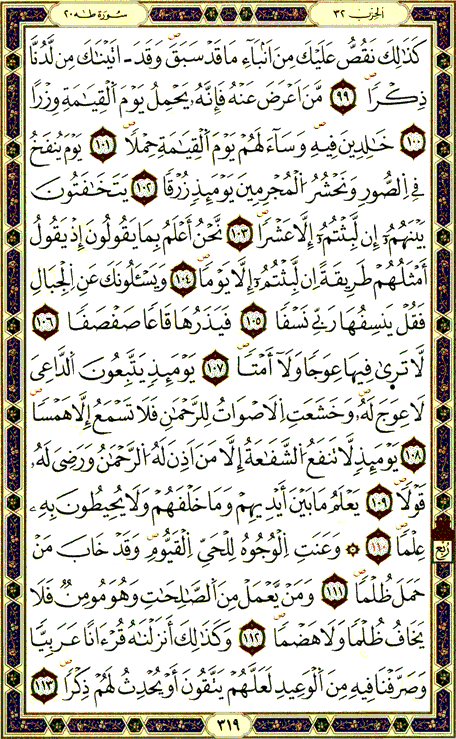 سُورَة طه ٢٠ الحِزب ٣٢
كَذَٰلِكَ نَقُصُّ عَلَيْكَ مِنَ اَنۢبَآءِ مَا قَدْ سَبَقَ وَقَدَ ـ اتَيْنَٰكَ مِن لَّدُنَّا
ذِكْرًا ٩٩ مَّنَ اَعْرَضَ عَنْهُ فَإِنَّهُۥ يَحْمِلُ يَوْمَ اَلْقِيَٰمَةِ وِزْرًا
١٠٠ خَٰلِدِينَ فِيهِ وَسَآءَ لَهُمْ يَوْمَ اَلْقِيَٰمَةِ حِمْلًا ١٠١ يَوْمَ يُنفَخُ
فِى اِلصُّورِ وَنَحْشُرُ اُلْمُجْرِمِينَ يَوْمَئِذٍ زُرْقًا ١٠٢ يَتَخَٰفَتُونَ
بَيْنَهُمُۥٓ إِن لَّبِثْتُمُۥٓ إِلَّا عَشْرًا ١٠٣ نَّحْنُ أَعْلَمُ بِمَا يَقُولُونَ إِذْ يَقُولُ
أَمْثَلُهُمْ طَرِيقَةً اِن لَّبِثْتُمُۥٓ إِلَّا يَوْمًا ١٠٤ وَيَسْـَٔلُونَكَ عَنِ اِلْجِبَالِ
فَقُلْ يَنسِفُهَا رَبِّى نَسْفًا ١٠٥ فَيَذَرُهَا قَاعًا صَفْصَفًا ١٠٦
لَّا تَرَىٰ فِيهَا عِوَجًا وَلَآ أَمْتًا ١٠٧ يَوْمَئِذٍ يَتَّبِعُونَ اَلدَّاعِىَ
لَا عِوَجَ لَهُۥ وَخَشَعَتِ اِلَاصْوَاتُ لِلرَّحْمَٰنِ فَلَا تَسْمَعُ إِلَّا هَمْسًا
١٠٨ يَوْمَئِذٍ لَّا تَنفَعُ اُلشَّفَٰعَةُ إِلَّا مَنَ اَذِنَ لَهُ اُلرَّحْمَٰنُ وَرَضِىَ لَهُۥ
قَوْلًا ١٠٩ يَعْلَمُ مَا بَيْنَ أَيْدِيهِمْ وَمَا خَلْفَهُمْ وَلَا يُحِيطُونَ بِهِۦ
عِلْمًا ١١٠ ۞ وَعَنَتِ اِلْوُجُوهُ لِلْحَىِّ اِلْقَيُّومِ وَقَدْ خَابَ مَنْ
رُبُع
حَمَلَ ظُلْمًا ١١١ وَمَنْ يَّعْمَلْ مِنَ اَلصَّٰلِحَٰتِ وَهُوَ مُومِنٌ فَلَا
يَخَافُ ظُلْمًا وَلَا هَضْمًا ١١٢ وَكَذَٰلِكَ أَنزَلْنَٰهُ قُرْءَانًا عَرَبِيًّا
وَصَرَّفْنَا فِيهِ مِنَ اَلْوَعِيدِ لَعَلَّهُمْ يَتَّقُونَ أَوْ يُحْدِثُ لَهُمْ ذِكْرًا ١١٣
٣١٩